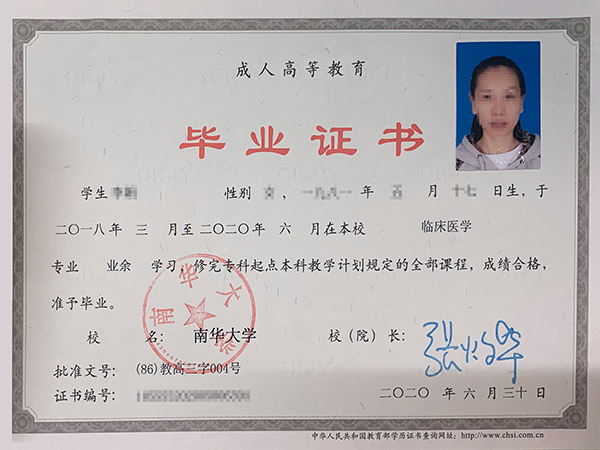 成人高等教育
毕业证书
学生 性别 , 年 月 日生,于
二〇一八年 三 月至二〇二〇年 六 月在本校 临床医学
专业 业余 学习,修完专科起点本科教学计划规定的全部课程,成绩合格,
准予毕业。
校 名: 南华大学 校(院)长:
批准文号: (86)教高三字004号
证书编号: 二〇二〇 年 六 月 三十 日
中华人民共和国教育部学历证书查询网址: http://www.chsi.com.cn
南华大学